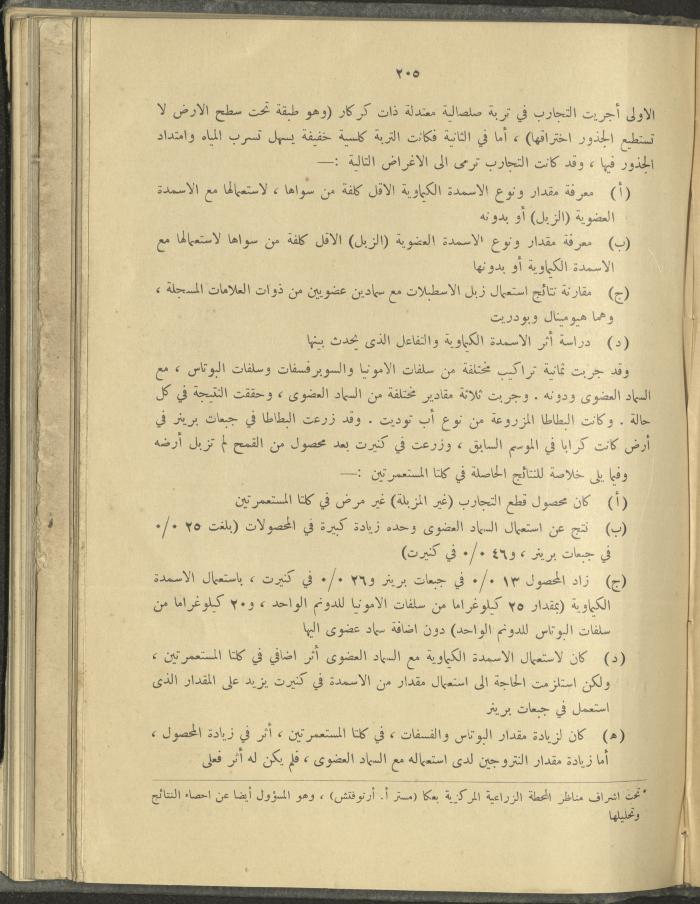 ٢٠٥
الاولى أجريت التجارب في تربة صلصالية معتدلة ذات كركار (وهو طبقة تحت سطح الارض لا
تستطيع الجذور اختراقها) ، أما في الثانية فكانت التربة كلسية خفيفة يسهل تسرب المياه وامتداد
الجذور فيها ، وقد كانت التجارب ترمى الى الاغراض التالية :—
(أ) معرفة مقدار ونوع الاسمدة الكيماوية الاقل كلفة من سواها ، لاستعمالها مع الاسمدة
العضوية (الزبل) أو بدونه
(ب) معرفة مقدار ونوع الاسمدة العضوية (الزبل) الاقل كلفة من سواها لاستعمالها مع
الاسمدة الكيماوية أو بدونها
(ج) مقارنة نتائج استعمال زبل الاسطبلات مع سمادين عضويين من ذوات العلامات المسجلة ،
وهما هيومينال وبودريت
(د) دراسة أثر الاسمدة الكيماوية والتفاعل الذى يحدث بينها
وقد جربت ثمانية تراكيب مختلفة من سلفات الامونيا والسوبرفسفات وسلفات البوتاس ، مع
السماد العضوى ودونه . وجربت ثلاثة مقادير مختلفة من السماد العضوى ، وحققت النتيجة في كل
حالة . وكانت البطاطا المزروعة من نوع أب توديت . وقد زرعت البطاطا في جبعات برينر في
أرض كانت كرابا في الموسم السابق ، وزرعت في كنيرت بعد محصول من القمح لم تزبل أرضه
وفيما يلى خلاصة للنتائج الحاصلة في كلتا المستعمرتين :—
(أ) كان محصول قطع التجارب (غير المزبلة) غير مرض في كلتا المستعمرتين
(ب) نتج عن استعمال السماد العضوى وحده زيادة كبيرة في المحصولات (بلغت ٢٥ ٠/٠
في جبعات برينر ، و٤٦ ٠/٠ في كنيرت)
(ج) زاد المحصول ١٣ ٠/٠ في جبعات برينر و٢٦ ٠/٠ في كنيرت ، باستعمال الاسمدة
الكيماوية (بمقدار ٢٥ كيلوغراما من سلفات الامونيا للدونم الواحد ، و٢٠ كيلوغراما من
سلفات البوتاس للدونم الواحد) دون اضافة سماد عضوى اليها
(د) كان لاستعمال الاسمدة الكيماوية مع السماد العضوى أثر اضافي في كلتا المستعمرتين ،
ولكن استلزمت الحاجة الى استعمال مقدار من الاسمدة في كنيرت يزيد على المقدار الذى
استعمل في جبعات برينر
(ه) كان لزيادة مقدار البوتاس والفسفات ، في كلتا المستعمرتين ، أثر في زيادة المحصول ،
أما زيادة مقدار النتروجين لدى استعماله مع السماد العضوى ، فلم يكن له أثر فعلى
* تحت اشراف مناظر المحطة الزراعية المركزية بعكا (مستر أ. أرتوفتش) ، وهو المسؤول أيضا عن احصاء النتائج
وتحليلها